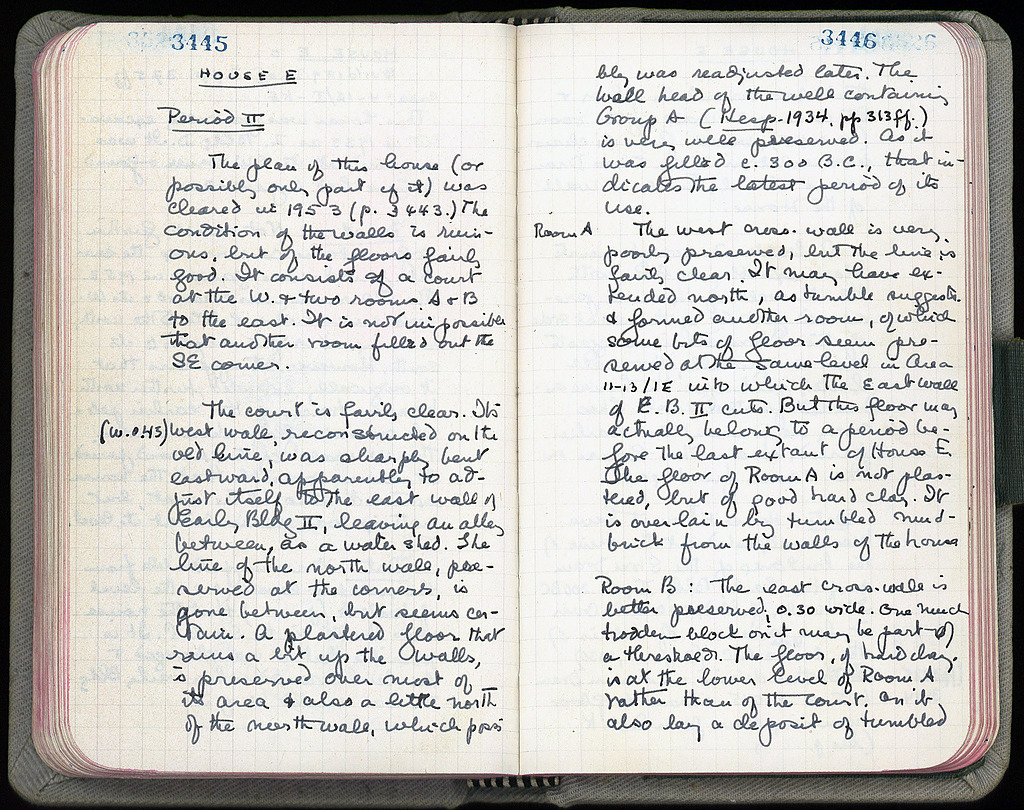 3445
HOUSE E
Period II
The plan of this house (or
possibly only part of it) was
cleared in 1953 (p. 3443.) The
condition of the walls is ruin-
ous, but of the floors fairly
good. It consists of a court
at the W. & two rooms A & B
to the east. It is not impossible
that another room filled out the
SE corner.
The court is fairly clear. Its
(W. 0.45) west wall, reconstructed on the
old line, was sharply bent
eastward, apparently to ad-
just itself to the east wall of
Early Bldg II, leaving an alley
between, as a water shed. The
line of the north wall, pre-
served at the corners, is
gone between, but seems cer-
tain. A plastered floor that
runs a bit up the walls,
is preserved over most of
its area & also a little north
of the north wall, which possi
3446
bly was readjusted later. The
wall head of the well containing
Group A (Hesp. 1934, pp 313ff.)
is very well preserved. As it
was filled c. 300 B.C., that in-
dicates the latest period of its
use.
Room A The west cross-wall is very
poorly preserved, but the line is
fairly clear. It may have ex-
tended north, as tumble suggests.
& formed another room, of which
some bits of floor seem pre-
served at the same level in Area
11-13/1E into which the East wall
of E.B. II cuts. But this floor may
actually belong to a period be-
fore the last extant of House E.
The floor of Room A is not plas-
tered, but of good hard clay. It
is overlain by tumbled mud-
brick from the walls of the house
Room B: The east cross-wall is
better preserved, 0.30 wide. One much
trodden block on it may be part of
a threshold. The floor, of hard clay,
is at the lower level of Room A
rather than of the court. On it
also lay a deposit of tumbled